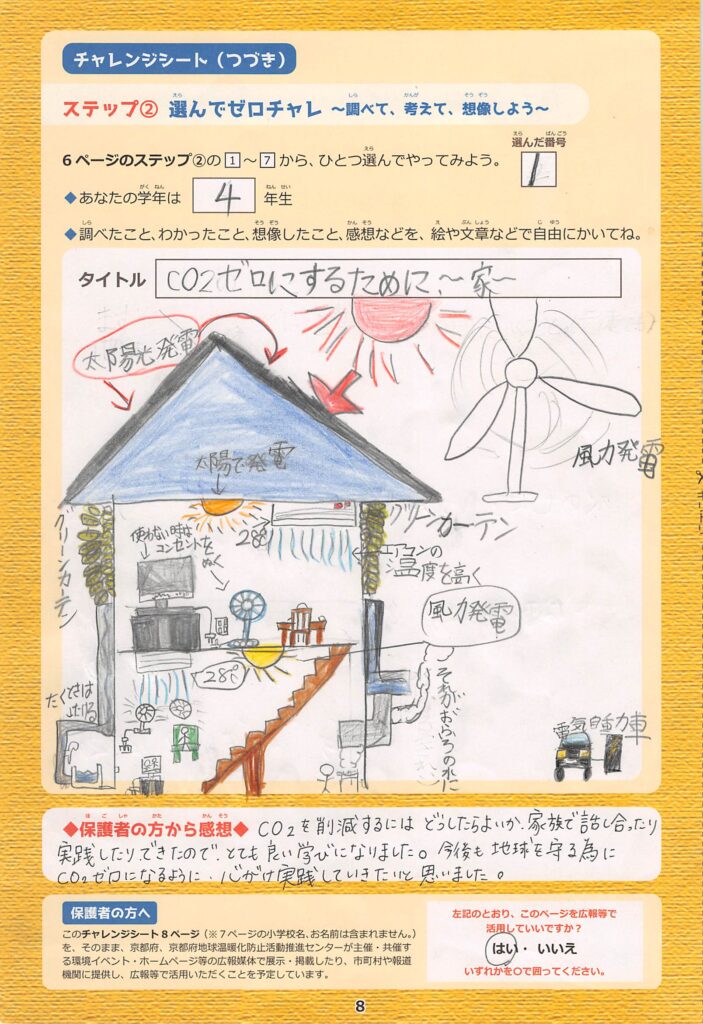 チャレンジシート(つづき)
ステップ② 選んでゼロチャレ ～調べて、考えて、想像しよう～
6ページのステップ②の1～7から、ひとつ選んでやってみよう。
選んだ番号
1
◆あなたの学年は 4 年生
◆調べたこと、わかったこと、想像したこと、感想などを、絵や文章などで自由にかいてね。
タイトル CO2ゼロにするために、～家～
太陽光発電
風力発電
太陽で発電
グリーンカーテン
グリーンカーテン
使わない時は
コンセントを
ぬく
28℃
エアコンの
温度を高く
風力発電
28℃
それがおふろの水に
電気自動車
◆保護者の方から感想◆ CO2を削減するには どうしたらよいか、家族で話し合ったり
実践したりできたので、とても良い学びになりました。今後も地球を守る為に
CO2ゼロになるように、心がけ実践していきたいと思いました。
保護者の方へ
このチャレンジシート8ページ(※7ページの小学校名、お名前は含まれません。)
を、そのまま、京都府、京都府地球温暖化防止活動推進センターが主催・共催す
る環境イベント・ホームページ等の広報媒体で展示・掲載したり、市町村や報道
機関に提供し、広報等で活用いただくことを予定しています。
左記のとおり、このページを広報等で
活用していいですか?
はい・いいえ
いずれかを〇で囲ってください。
8